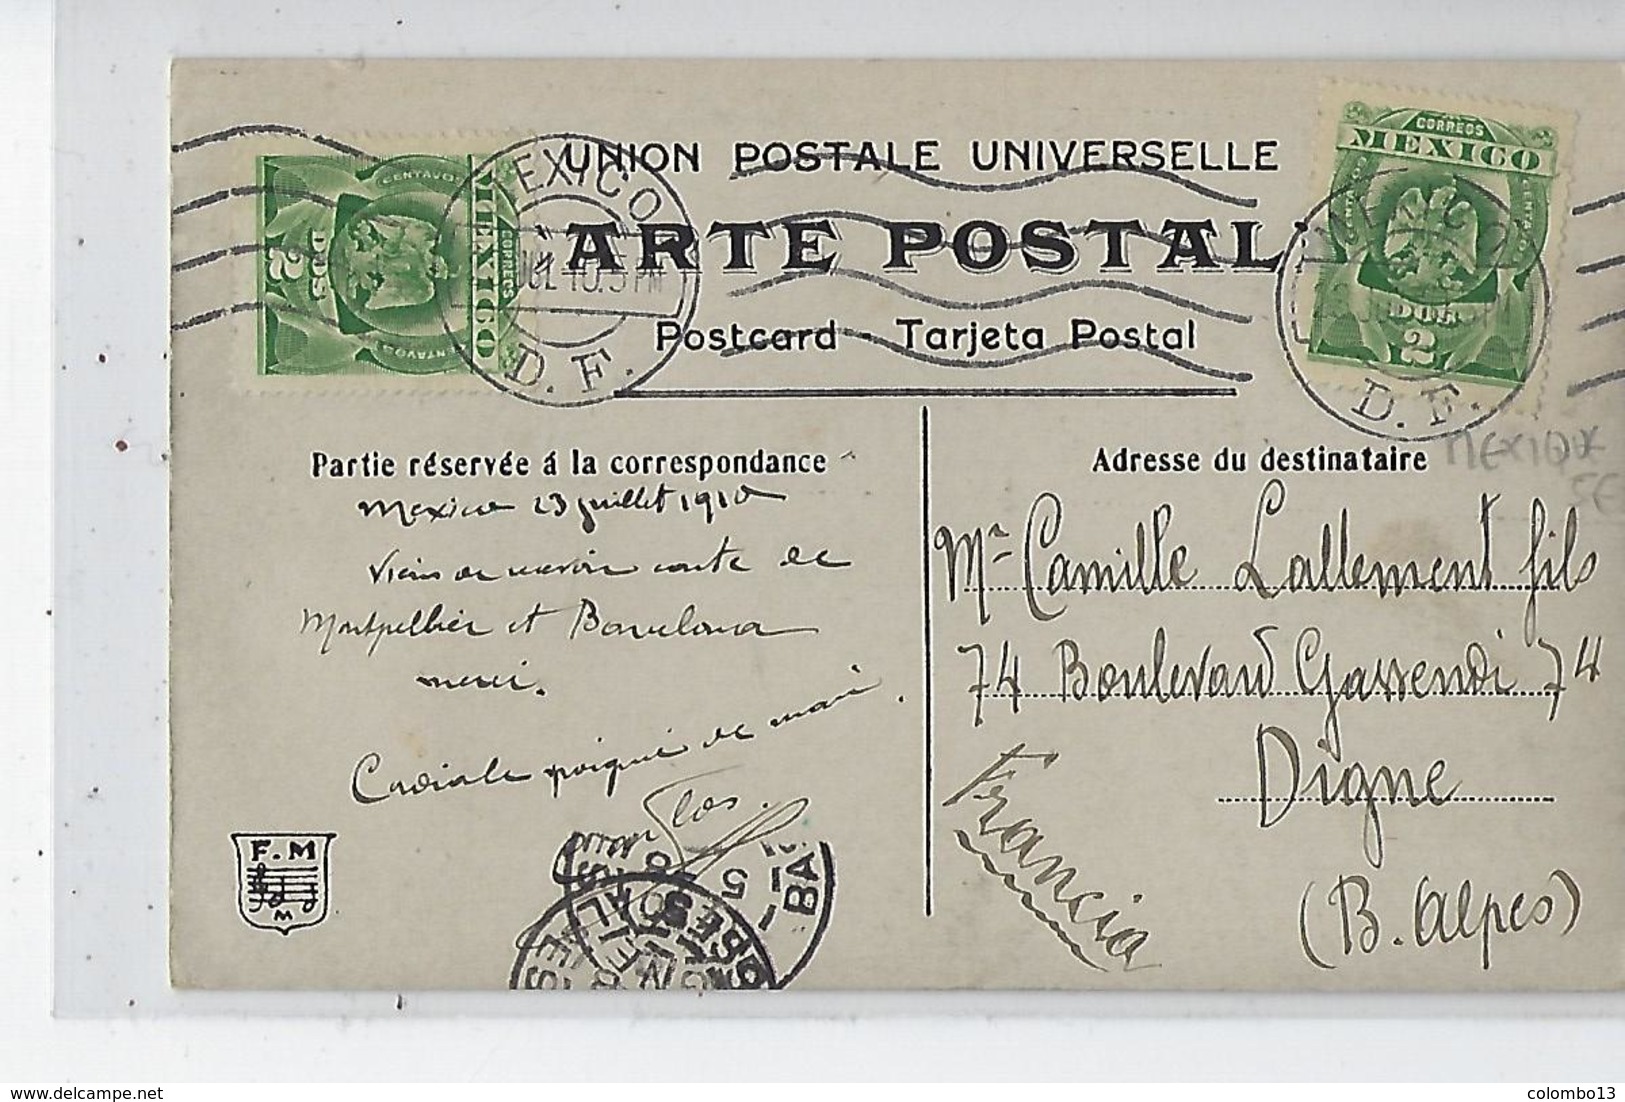 UNION POSTALE UNIVERSELLE
CARTE POSTAL
Postcard - Tarjeta Postal
CORREOS
MEXICO
CENTAVOS
DOS
2
CORREOS
MEXICO
DOS
2
MEXICO
JUL 10.5 PM
D. F.
MEXICO
D. F.
Partie réservée á la correspondance
Mexico 23 juillet 1910
Viens de recevoir carte de
Montpellier et Barcelona
merci.
Cordiale poignée de main.
F. M
M
Adresse du destinataire
MEXIQUE
5E
Mr Camille Lallement fils
74 Boulevard Gassendi 74
Digne
(B. Alpes)
Francia
delcampe.net
colombo13